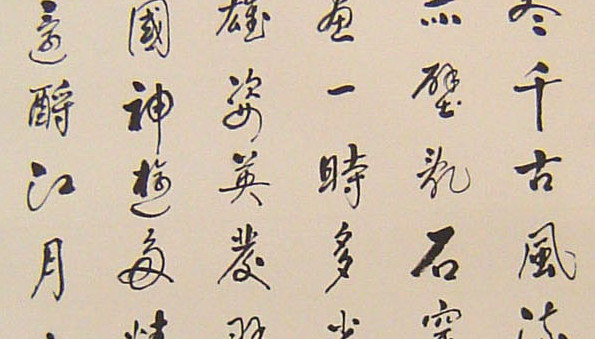 尽千古風流
赤壁亂石穿
畫一時多少
雄姿英發羽
國神遊多情
還酹江月